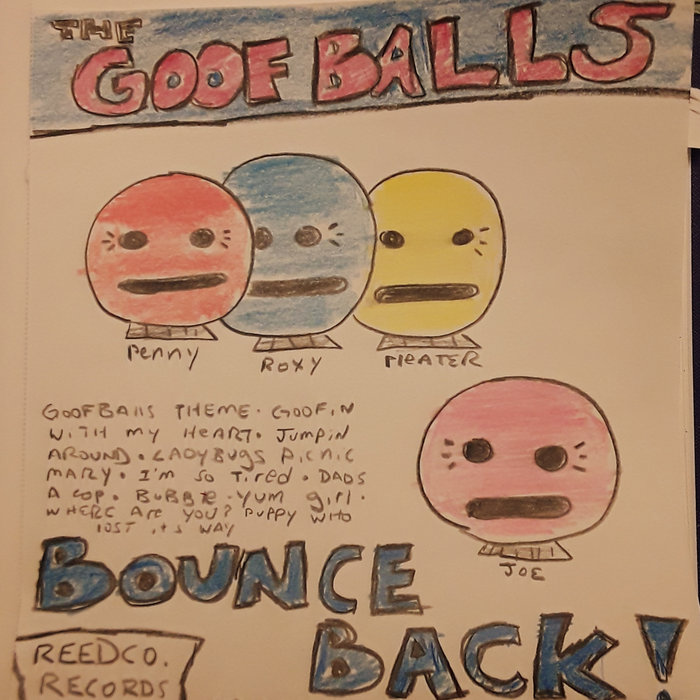 THE
GOOF BALLS
PENNY
ROXY
MEATER
GOOFBALLS THEME. GOOFIN
WITH MY HEART. JUMPIN
AROUND. LADYBUGS PICNIC
MARY. I'M SO TIRED. DADS
A COP. BUBBLE-YUM GIRL.
WHERE ARE YOU? PUPPY WHO
LOST ITS WAY
JOE
BOUNCE
BACK!
REEDCO.
RECORDS